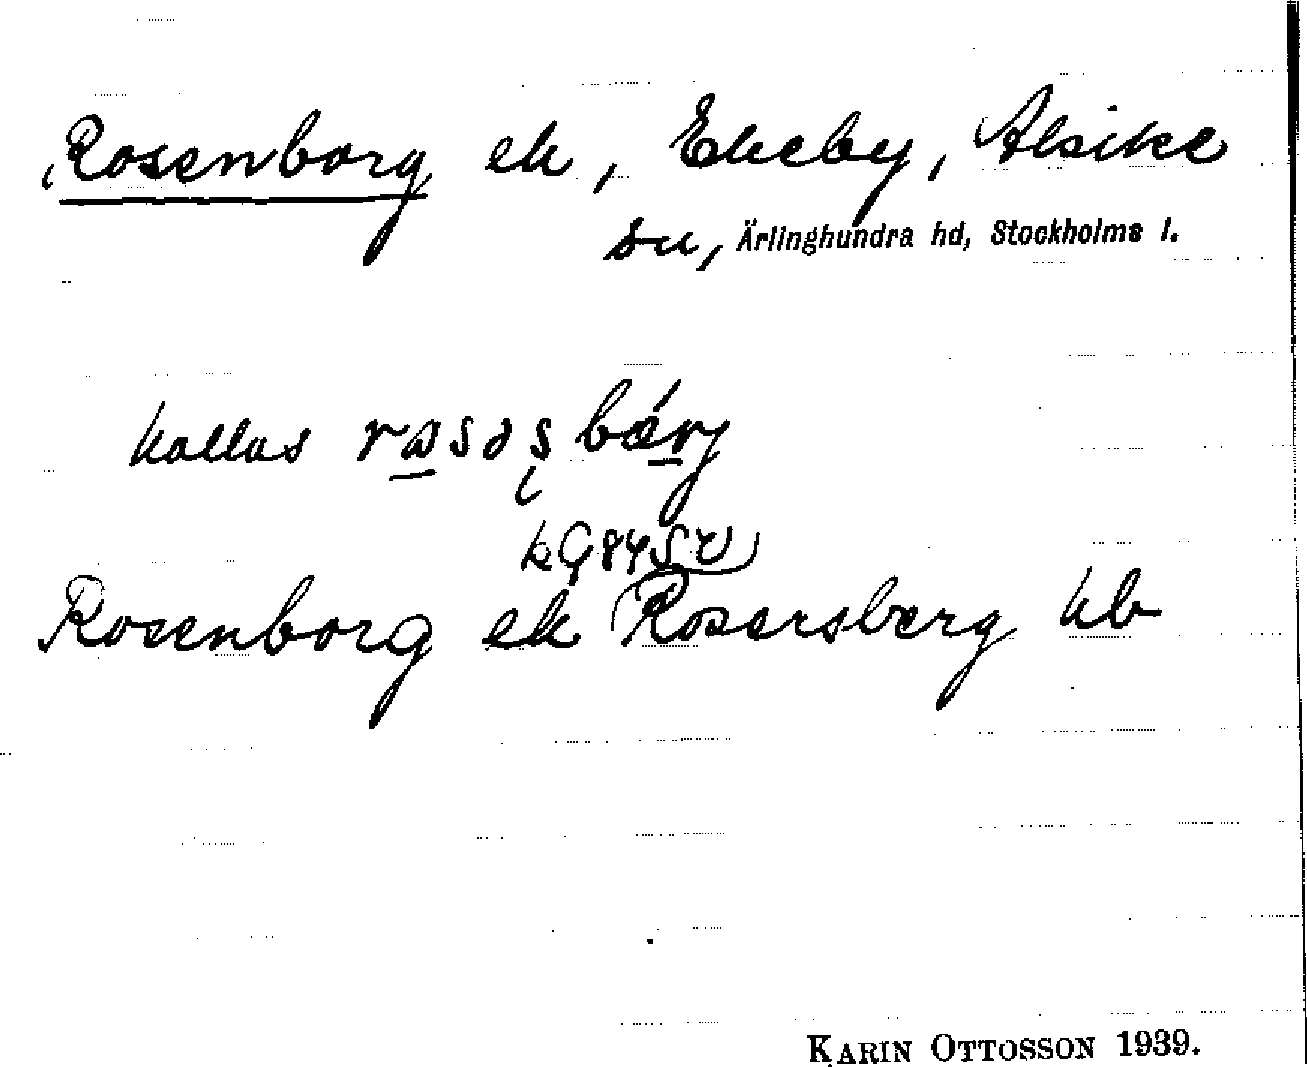 Rosenborg ek, Ekeby, Alsike
sn, Ärlinghundra hd, Stockholms l.
kallas
Rosenborg ek Rosersberg kb
KARIN OTTOSSON 1939.